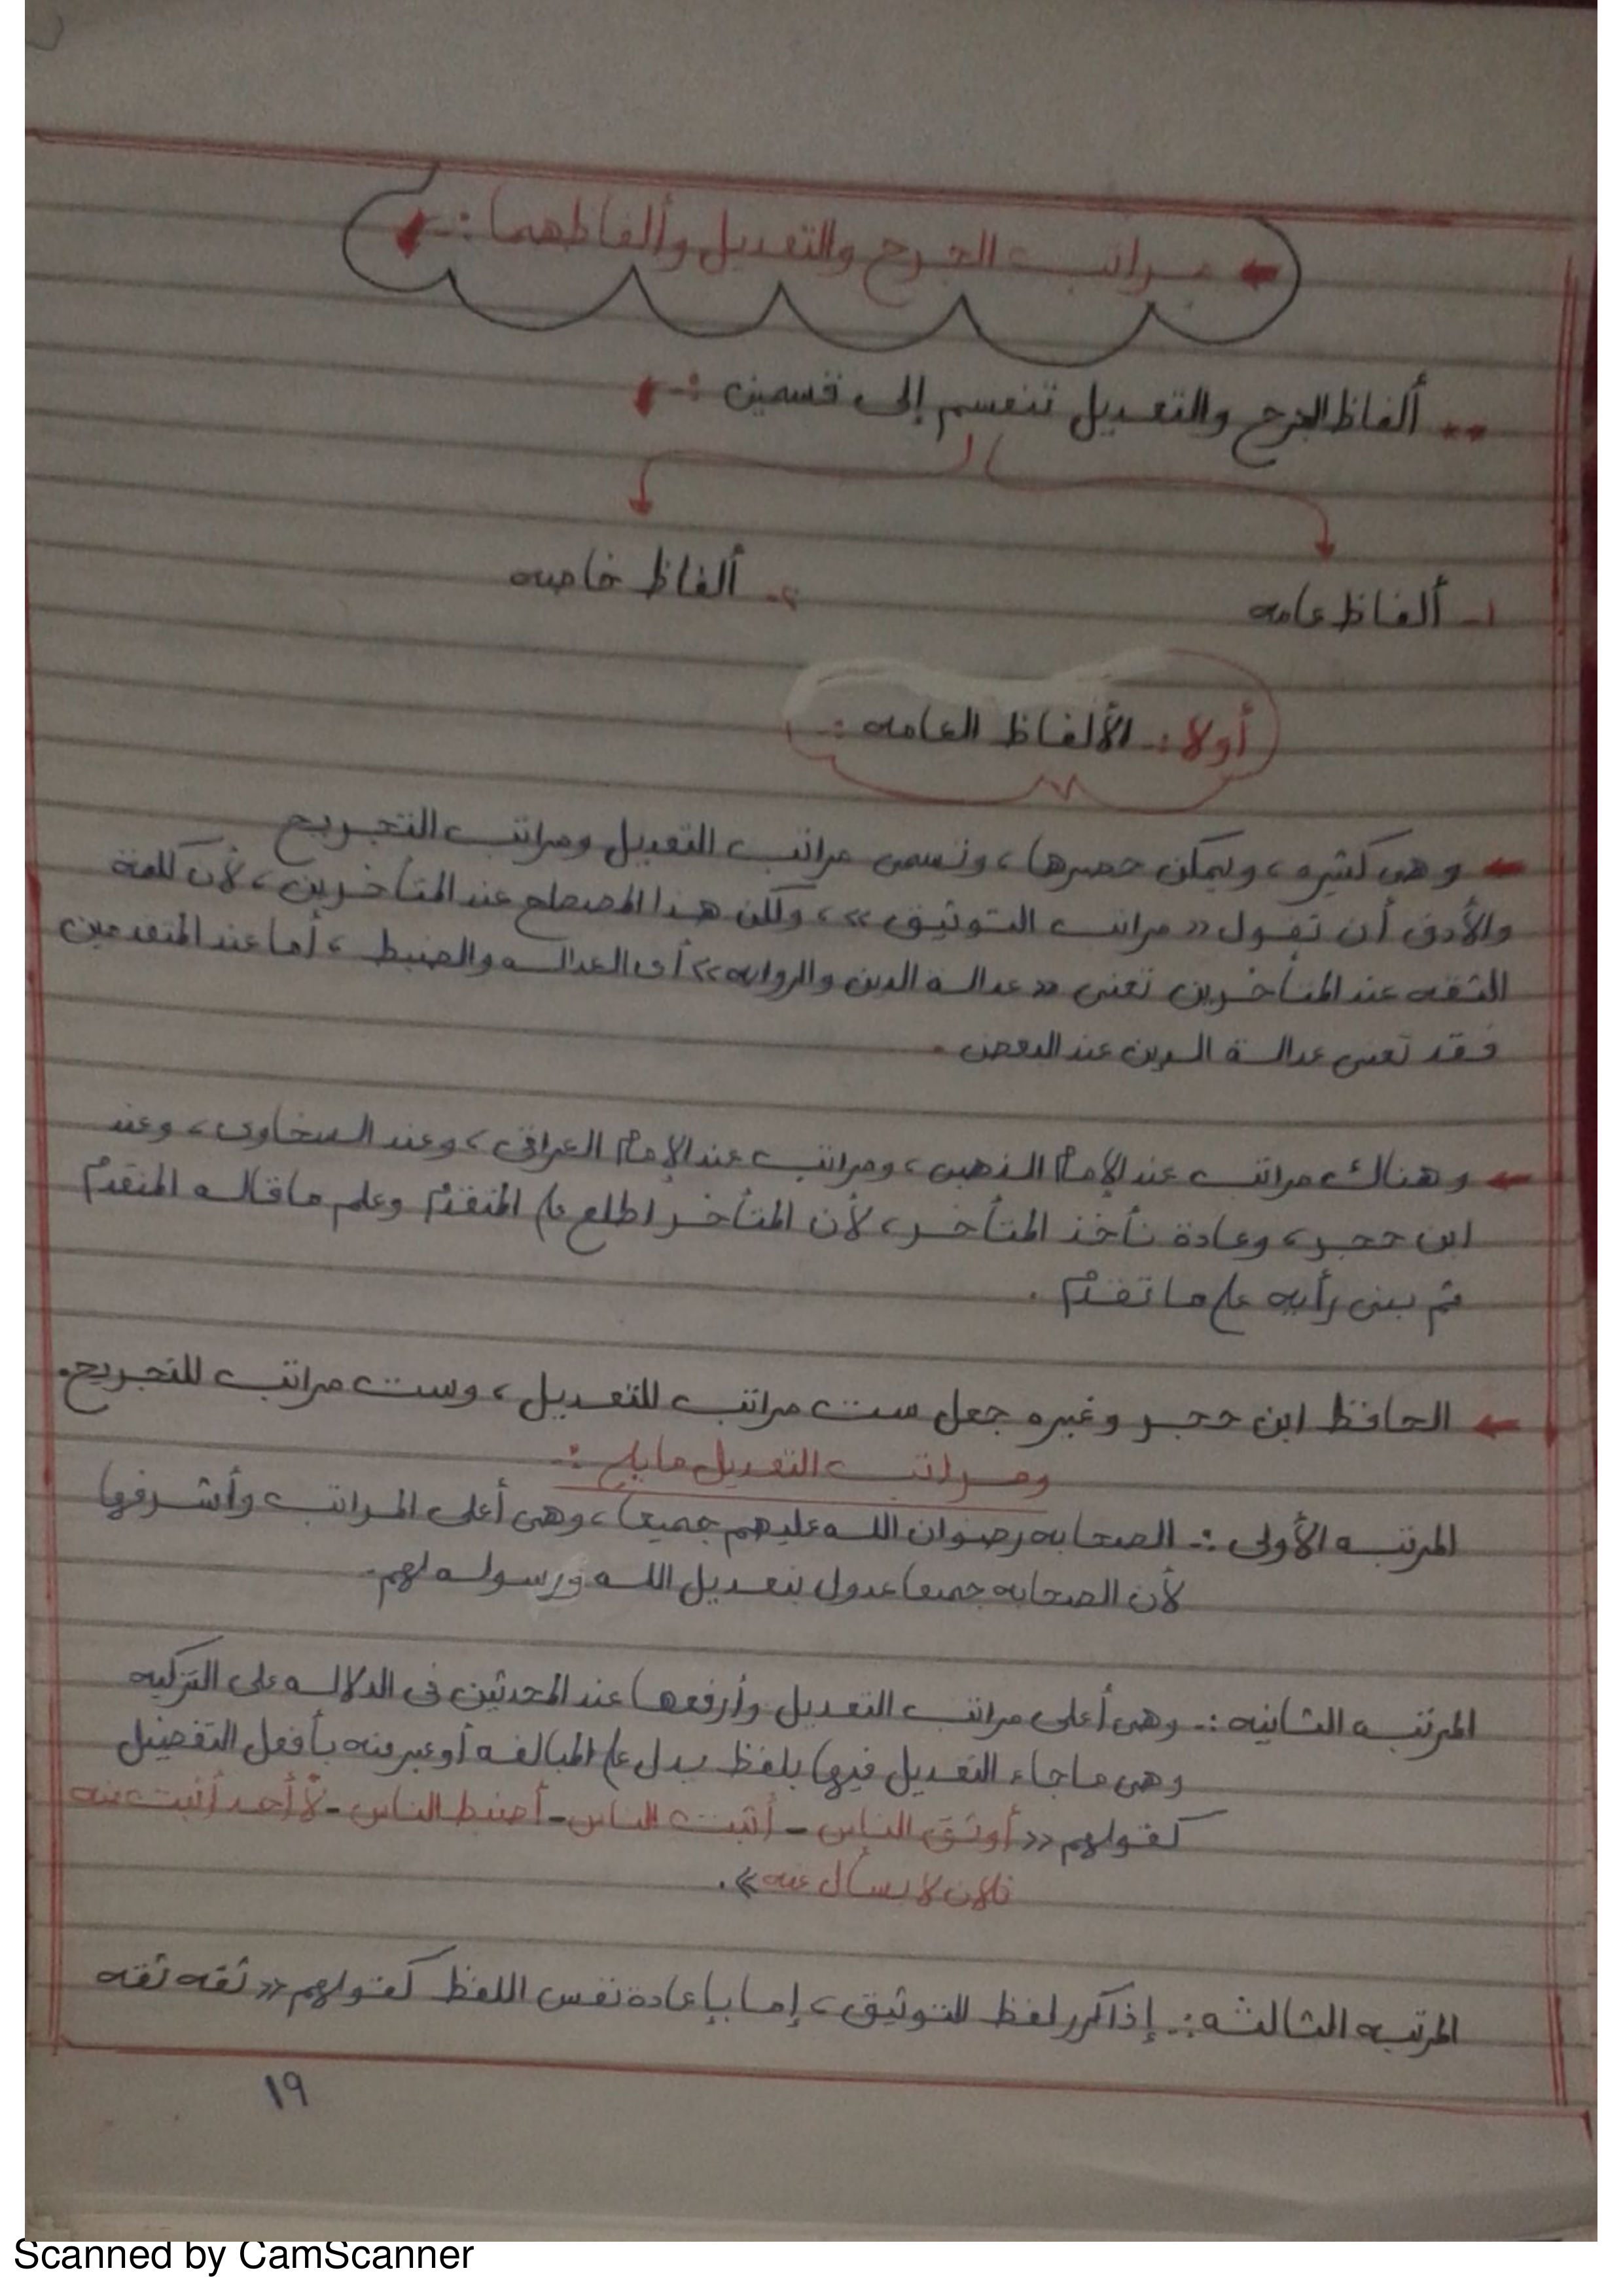 ← مراتب الجرح والتعديل وألفاظهما :-
** ألفاظ الجرح والتعديل تنقسم إلى قسمين :-
١- ألفاظ عامه
٢- ألفاظ خاصه
أولا :- الألفاظ العامه :-
← وهى كثيره ، ويمكن حصرها ، وتسمى مراتب التعديل ومراتب التجريح
والأدق أن تقول « مراتب التوثيق » ، ولكن هذا المصطلح عند المتأخرين ، لأن كلمة
الثقه عند المتأخرين تعنى « عدالة الدين والروايه » أى العداله والضبط ، أما عند المتقدمين
فقد تعنى عدالة الدين عند البعض .
← وهناك مراتب عند الإمام الذهبى ، ومراتب عند الإمام العراقى ، وعند السخاوى ، وعند
ابن حجر ، وعادة نأخذ المتأخر ، لأن المتأخر اطلع على المتقدم وعلم ما قاله المتقدم
ثم بنى رأيه على ما تقدم .
← الحافظ ابن حجر وغيره جعل ست مراتب للتعديل ، وست مراتب للتجريح .
ومراتب التعديل مايلى :-
المرتبه الأولى :- الصحابه رضوان الله عليهم جميعا ، وهى أعلى المراتب وأشرفها
لأن الصحابه جميعا عدول بتعديل الله ورسوله لهم .
المرتبه الثانيه :- وهى أعلى مراتب التعديل وأرفعها عند المحدثين فى الدلاله على التزكيه
وهى ماجاء التعديل فيها بلفظ يدل على المبالغه أو عبر عنه بأفعل التفضيل
كقولهم « أوثق الناس - أثبت الناس - أضبط الناس - لا أحد أثبت منه
فلان لا يسأل عنه » .
المرتبه الثالثه :- إذا كرر لفظ للتوثيق ، إما بإعادة نفس اللفظ كقولهم « ثقه ثقه
١٩
Scanned by CamScanner